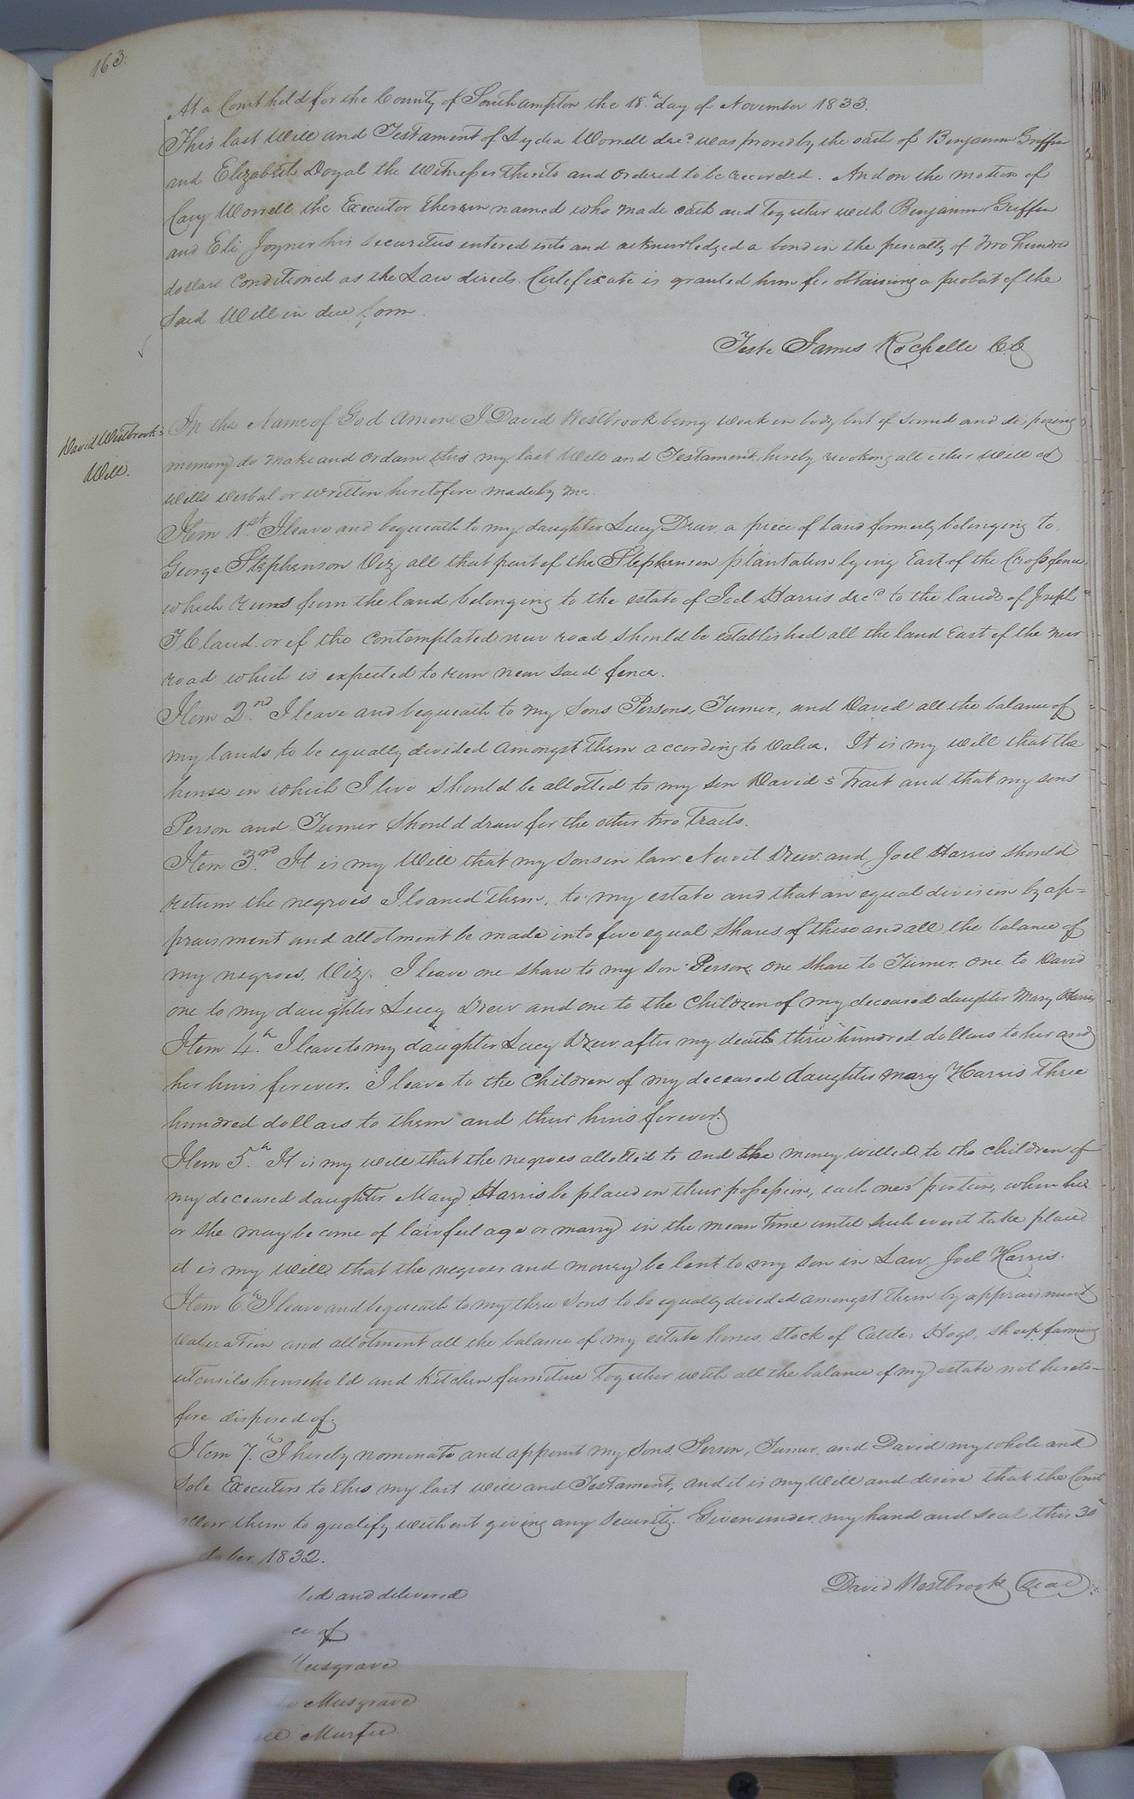 163.
At a Court held for the County of Southampton the 18th day of November 1833.
This last Will and Testament of Lydia Worrell decd was proved by the oath of Benjamin Griffin
and Elizabeth Doyal the Witnesses thereto and ordered to be recorded. And on the motion of
Cary Worrell the Executor therein named who made oath and together with Benjamin Griffin
and Eli Joyner his securities entered into and acknowledged a bond in the penalty of Two hundred
dollars Conditioned as the Law directs Certificate is granted him for obtaining a probat of the
Said Will in due form.
Teste James Rochelle CC
David Westbrook's
Will.
In the Name of God Amen I David Westbrook being weak in body but of sound and disposing
memory do make and ordain this my last Will and Testament, hereby revoking all other Will or
Wills verbal or written heretofore made by me.
Item 1st. I leave and bequeath to my daughter Lucy Drew, a piece of land formerly belonging to
George Stephenson Viz, all that part of the Stephenson plantation lying East of the Cross fence
which runs from the land belonging to the estate of Joel Harris decd to the lands of Joseph
T Claud. or if the contemplated new road should be established all the land East of the new
road which is expected to run near said fence.
Item 2nd. I leave and bequeath to my sons Persons, Turner, and David all the balance of
my lands to be equally divided amongst them according to value. It is my will that the
house in which I live should be allotted to my son David's Tract and that my sons
Person and Turner should draw for the other two Tracts.
Item 3rd. It is my Will that my sons in law Newit Drew and Joel Harris should
return the negroes I loaned them, to my estate and that an equal division by ap=
praisment and allotment be made into five equal shares of these and all the balance of
my negroes, Viz, I leave one share to my son Person, one share to Turner, one to David
one to my daughter Lucy Drew and one to the Children of my deceased daughter Mary Harris
Item 4th. I leave to my daughter Lucy Drew after my death three hundred dollars to her and
her heirs forever. I leave to the Children of my deceased daughter Mary Harris Three
hundred dollars to them and their heirs forever.
Item 5th. It is my will that the negroes allotted to and the money willed to the children of
my deceased daughter Mary Harris be placed in their possession, each one's portion, when he
or she may become of lawful age or marry in the mean time until such event take place
it is my will that the negroes and money be lent to my son in Law, Joel Harris.
Item 6th I leave and bequeath to my three sons to be equally divided amongst them by appraisment
valuation and allotment all the balance of my estate horses, stock of Cattle, Hogs, sheep farming
utensils household and kitchen furniture together with all the balance of my estate not hereto-
fore disposed of.
Item 7th. I hereby nominate and appoint my sons Person, Turner, and David my whole and
Sole Executors to this my last will and Testament, and it is my Will and desire that the Court
allow them to qualify without giving any security. Given under my hand and seal this 30th
1832.
David Westbrook (Seal)
and delivered
of
Musgrave
Musgrave
Murfee